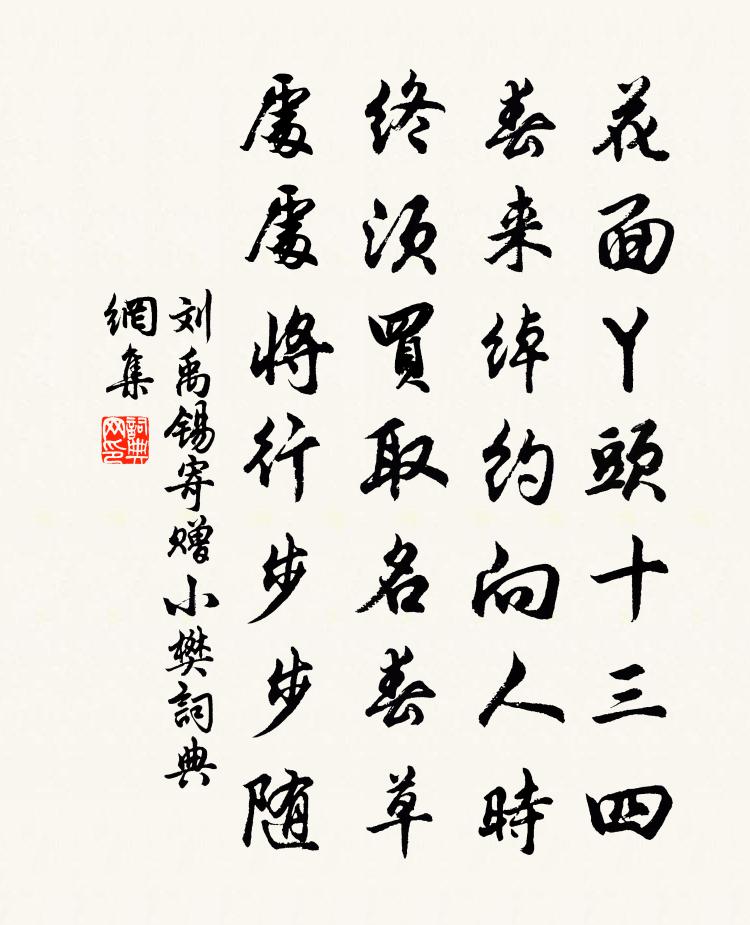 花面丫頭十三四
春来綽約向人時
終須買取名春草
處處將行步步随
刘禹锡寄赠小樊詞典
網集
詞典
网印